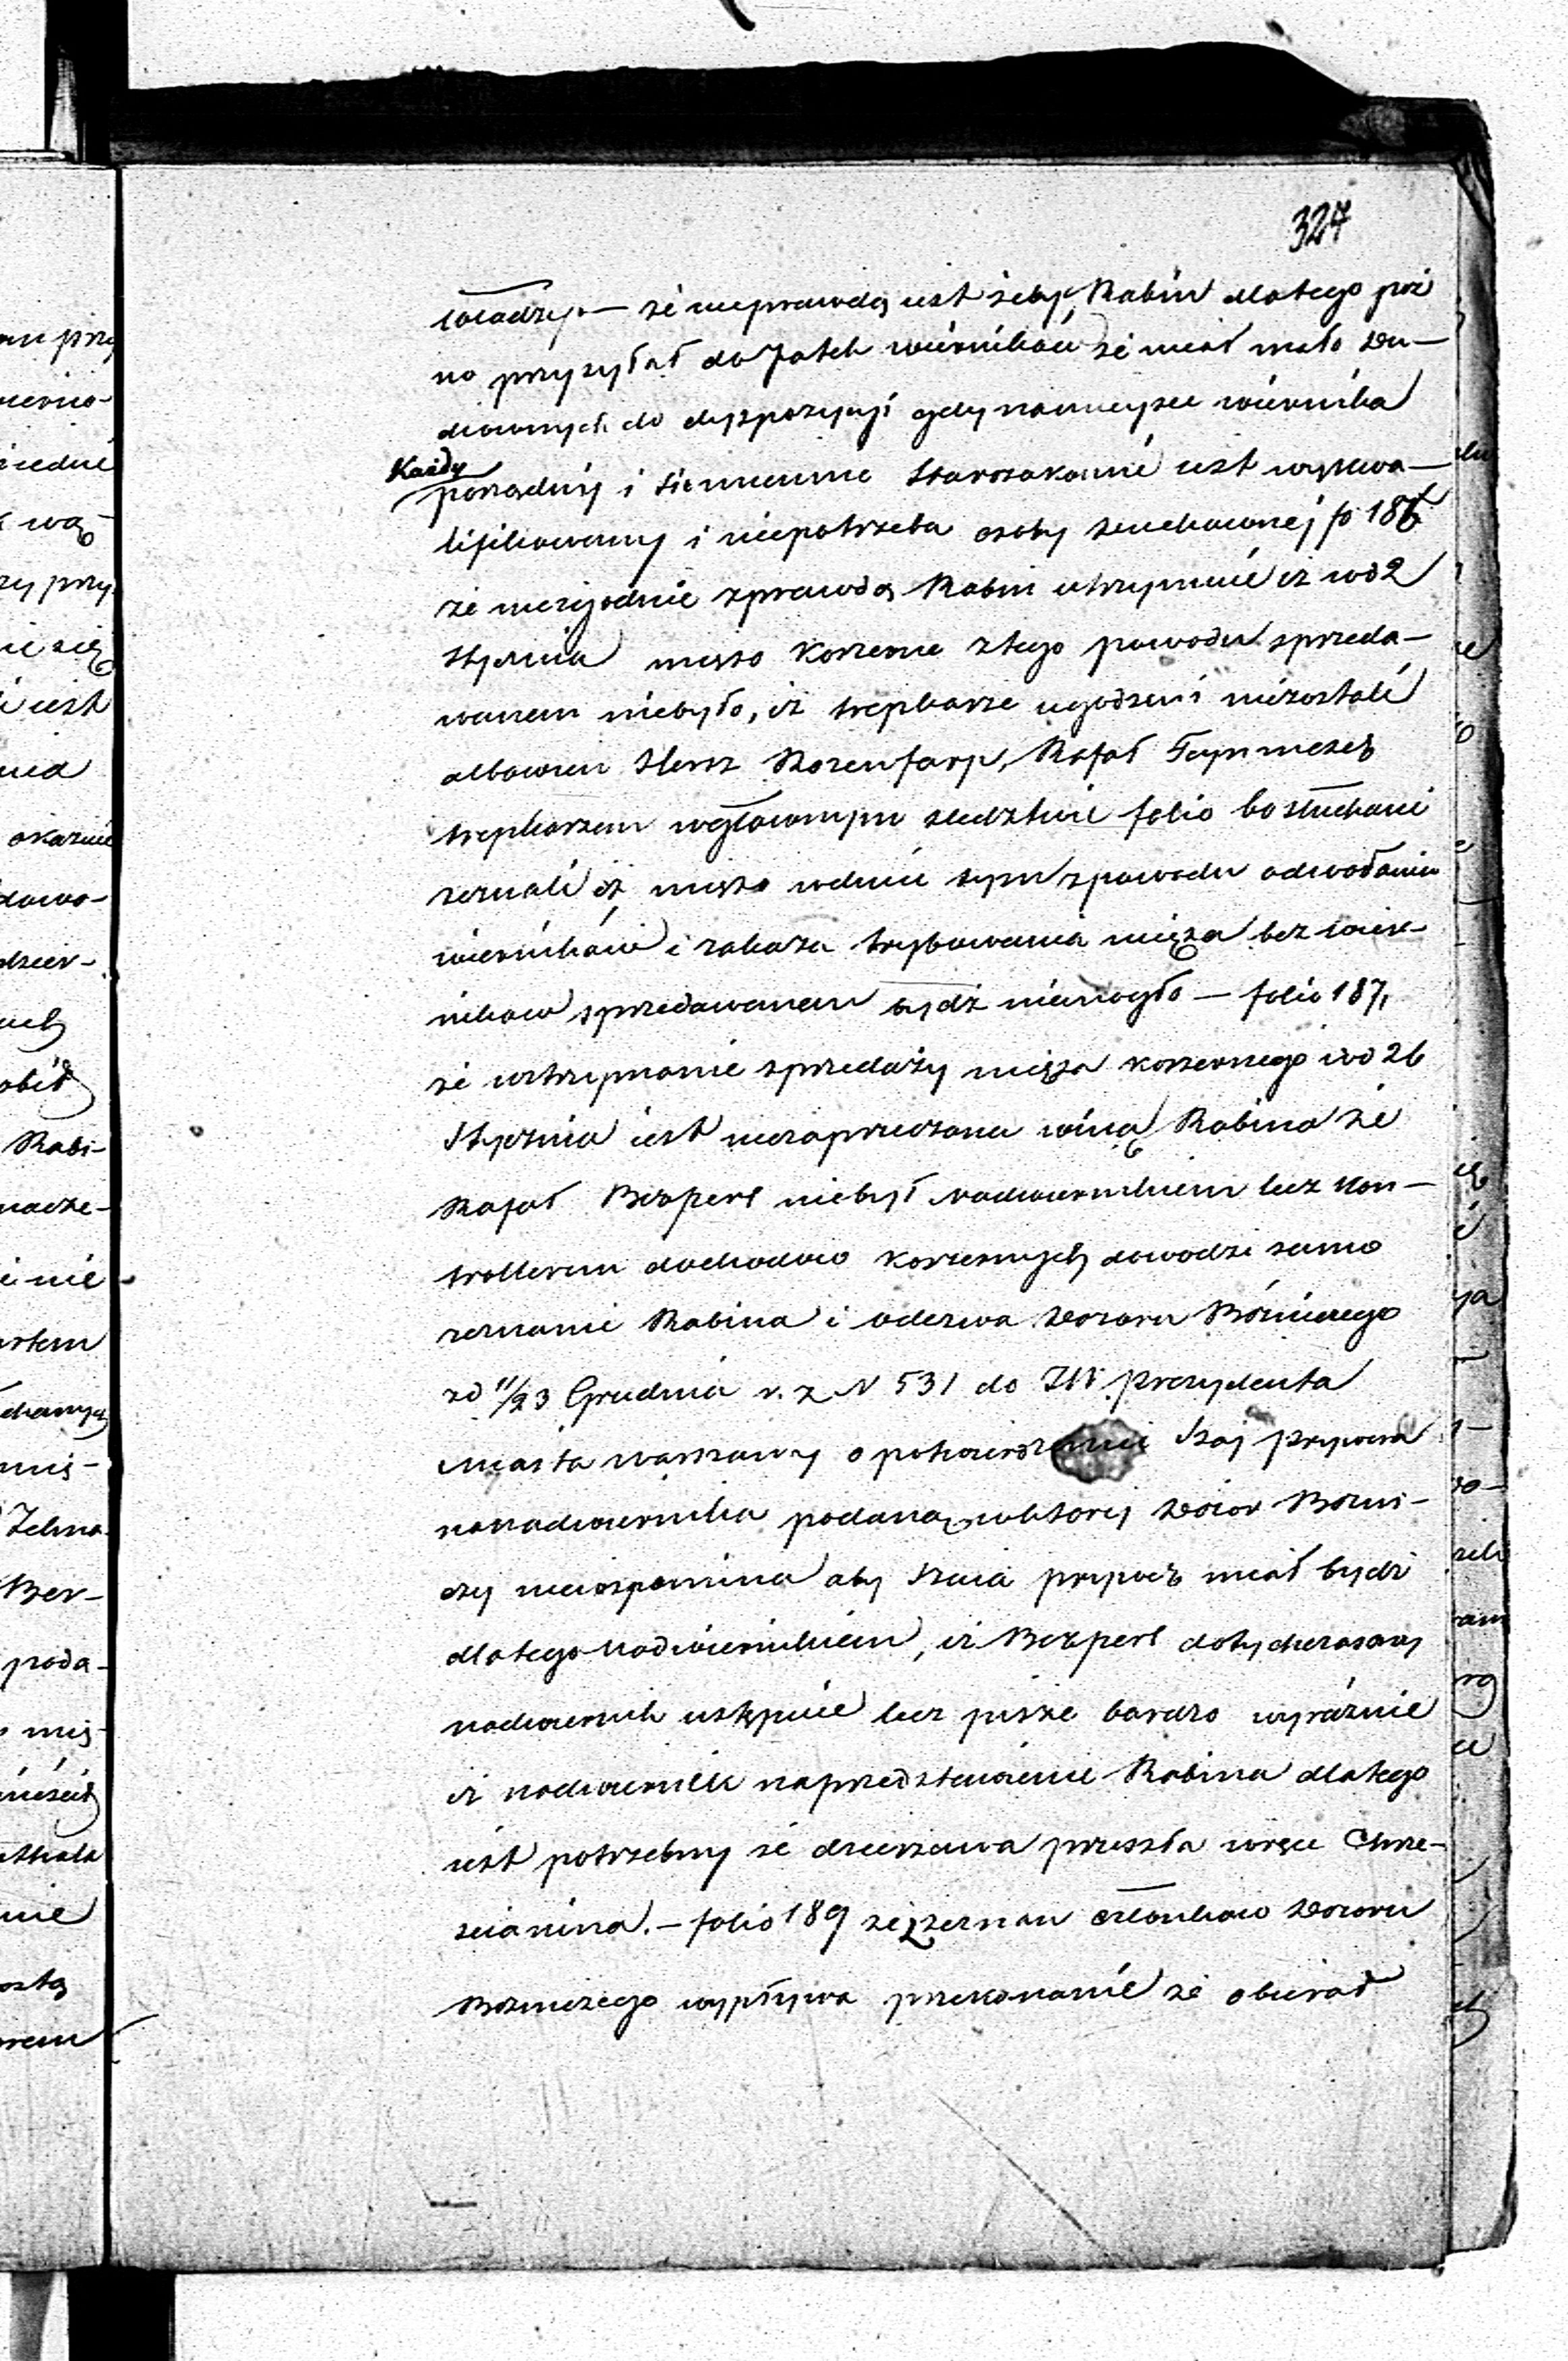 327
władzy. — że nieprawdą iest żeby Rabin dlatego póź
no przysyłał do Jatek wierników że miał mało Du—
chownych do dyspozycyi gdy na mieysce wiernika
Każdy
porządny i sumienny Starozakonny iest wykwa—
lifikowany i niepotrzeba osoby duchownej fo 186
że niezgodnie zprawdą Rabin utrzymuie iż wd 2
Stycznia mięso koszerne ztego powodu sprzeda—
wanem niebyło, iż trepkarze ugodzeni niezostali
albowiem Hersz Rozenfarp, Rafał
trepkarzem wgłownym sledztwie folio 60 słuchani
zeznali iż mięso wdniu tym zpowodu odwołania
wierników i zakazu trybowania mięsa bez wier-
ników sprzedawanem bydź niemogło — folio 187,
że wstrzymanie sprzedaży mięsa koszernego wd 26
Stycznia iest niezaprzeczona winą Rabina że
Rafał Berpert niebył nadwiernikiem lecz kon—
trollerem dochodow koszernych dowodzi samo
zeznanie Rabina i odezwa Dozoru Bóżniczego
zd 11/23 Grudnia r. z N 531 do JW prezydenta
Miasta Warszawy o potwierdzenie Szaj prywera
nanadwiernika podana, wktorej Dozor Bozni-
czy niewspomina aby Szaia miał bydź
dlatego Nadwiernikiem, iż Berpert dotychczasowy
nadwiernik ustępuie lecz pisze bardzo wyraźnie
iż nadwiernik naprzedstawienie Rabina dlatego
iest potrzebny że dzierzawa przeszła wręce Chrze-
scianina. — folio 189 że z zeznan członkow Dozoru
Bozniczego wypływa przekonanie że obierać